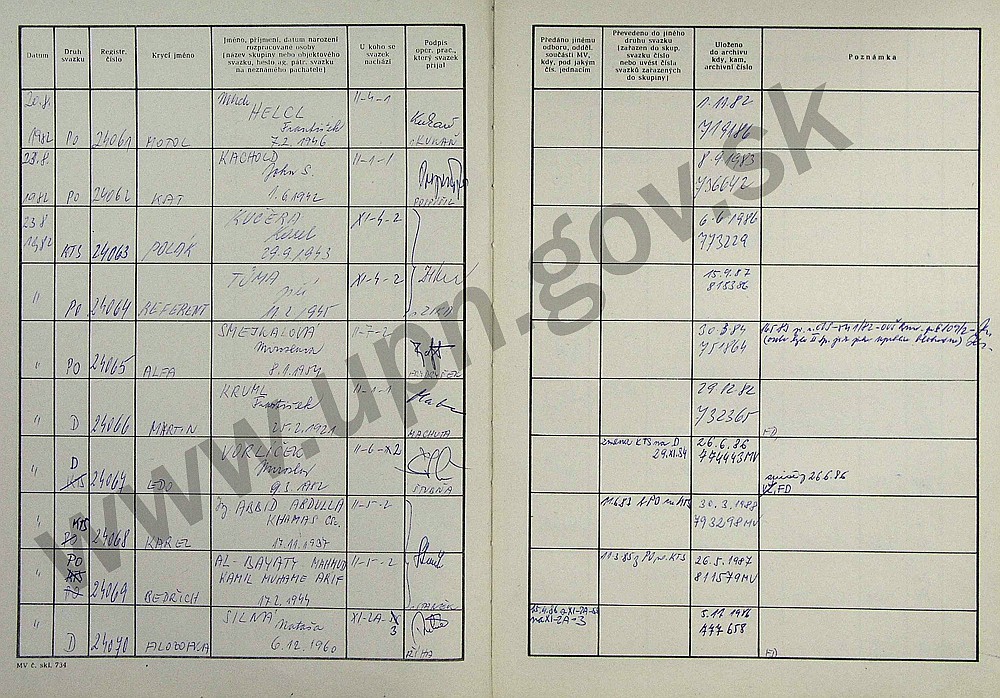 Datum
Druh svazku
Registr. číslo
Krycí jméno
Jméno, příjmení, datum narození rozpracované osoby (název skupiny nebo objektového svazku, heslo ag. pátr. svazku na neznámého pachatele)
U koho se svazek nachází
Podpis oper. prac., který svazek přijal
Předáno jinému odboru, odděl. součásti MV, kdy, pod jakým čís. jednacím
Převedeno do jiného druhu svazku (zařazen do skup. svazku číslo nebo uvést čísla svazků zařazených do skupiny)
Uloženo do archivu kdy, kam, archivní číslo
Poznámka
20.8. 1982 PO 24061 MOTOL HELCL František 7.2.1946 II-4-1
1.11.82 719186
23.8. 1982 PO 24062 KAT KACHOLD John S. 1.6.1942 II-1-1 POSPÍŠIL
8.9.1983 736642
23.8 1982 KTS 24063 POLÁK KUČERA Karel 29.9.1943 XI-4-2
6.6.1986 773229
" PO 24064 REFERENT TŮMA Jiří 11.2.1945 XI-4-2
15.9.87 815386
" PO 24065 ALFA SMEJKALOVÁ Miroslava 8.1.1954 II-7-2
30.3.84 751864
" D 24066 MARTIN KRUML František 25.2.1921 II-1-1 MACHUTA
29.12.82 732365 FD
" D KTS 24067 EDO VORLÍČEK Miroslav 9.3.1952 II-6-2
změna KTS na D 29.XI.84
26.6.86 774443MV
26.6.86 FD
" KTS PO 24068 KAREL Ing ARBID ABDULLA KHAMAS CSc. 17.11.1937 II-5-2
30.3.1988 793298MV
" PO KTS PO 24069 BEDŘICH AL-BAYATY MAHMUD KAMIL MUHAME ARIF 17.2.1944 II-5-2
26.5.1987 811579MV
" D 24070 SILNÁ Nataša 6.12.1960 XI-2A-3 ŘÍHA
15.4.86 z XI-2A- na XI-2A-3
5.12.1986 777658 FD
MV č. skl. 734
www.upn.gov.sk